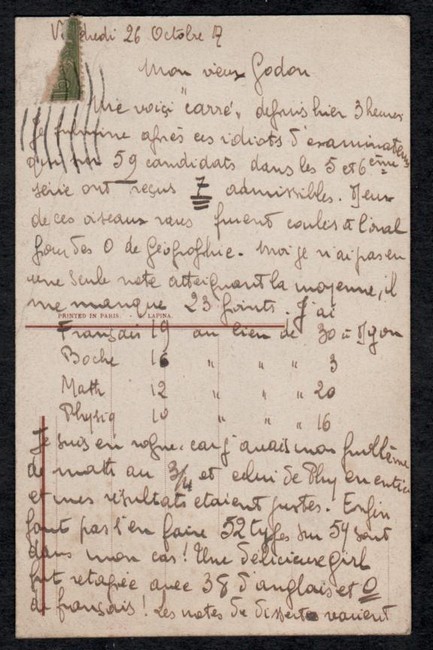 Vendredi 26 Octobre 17
Mon vieux Godon
Me voici "carré", depuis hier 3 heures
Je fulmine après ces idiots d'examinateurs
qui sur 59 candidats dans les 5 et 6ème
série ont reçus 7 admissibles. Deux
de ces oiseaux rares furent coulés à l'oral
pour des 0 de Géographie. Moi je n'ai pas eu
une seule note atteignant la moyenne, il
me manque 23 points. J'ai
PRINTED IN PARIS. - LAPINA.
Français 19 au lieu de 30 à Dijon
Boche 16 " " " 3
Math 12 " " " 20
Physiq 10 " " " 16
Je suis en rogne, car j'avais mon problème
de math au 3/4 et celui de Phy en entier
et mes résultats étaient justes. Enfin
faut pas s'en faire 52 types sur 59 sont
dans mon cas! Une délicieuse girl
fut retapée avec 38 d'anglais et 0
de français! Les notes de disserte varient